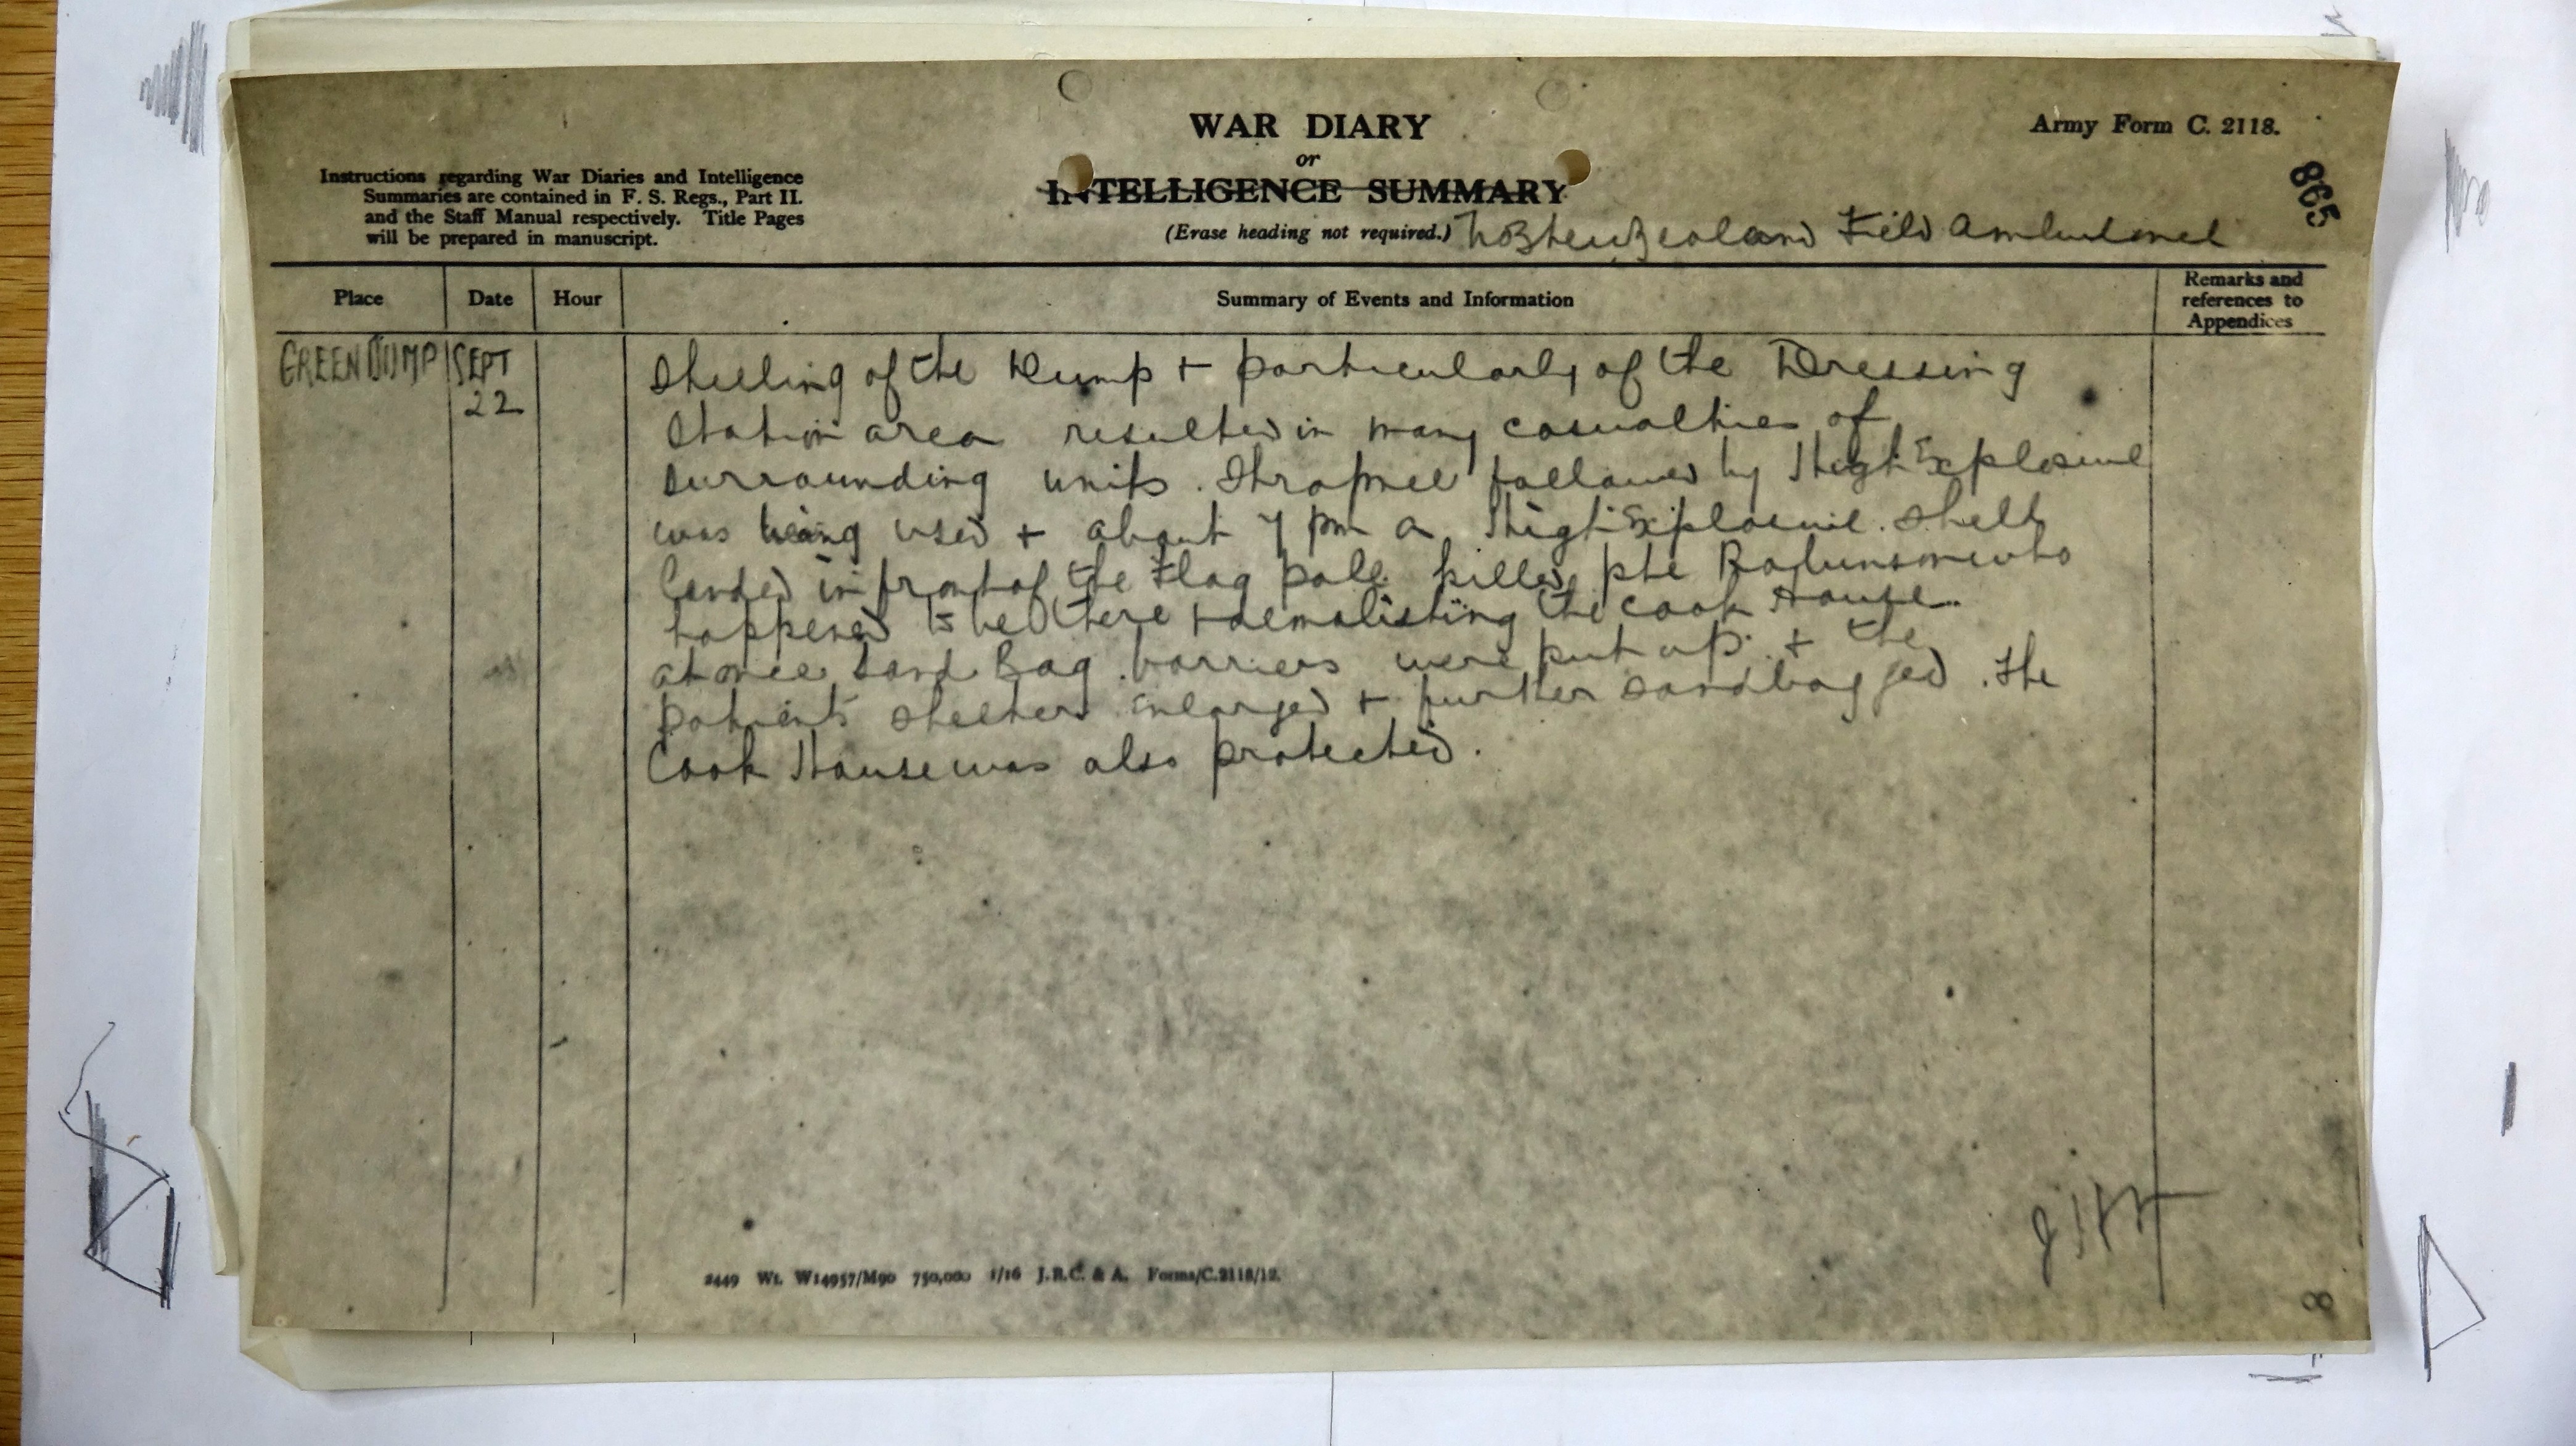 WAR DIARY
or
INTELLIGENCE SUMMARY
(Erase heading not required.)
Army Form C. 2118.
865
Instructions regarding War Diaries and Intelligence
Summaries are contained in F. S. Regs., Part II.
and the Staff Manual respectively. Title Pages
will be prepared in manuscript.
No 3 New Zealand Field Ambulance
Place Date Hour Summary of Events and Information Remarks and references to Appendices
GREEN DUMP SEPT
22
Shelling of the Dump + particularly of the Dressing
Station area resulted in many casualties of
surrounding units. Shrapnel followed by High Explosive
was being used + about 7 pm a High Explosive shell
landed in front of the Flag pole killed pte Robinson who
happened to be there + demolishing the Cook House
at once Sand Bag barriers were put up + the
patients shelters enlarged + further sandbagged. The
Cook House was also protected.
2449 Wt. W14957/M90 750,000 1/16 J.B.C. & A. Forms/C.2118/12.
8